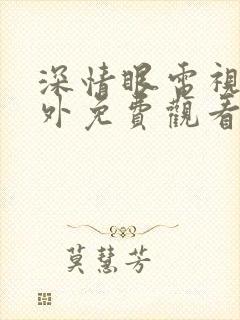 深情眼電視
外免費觀看
莫慧芳